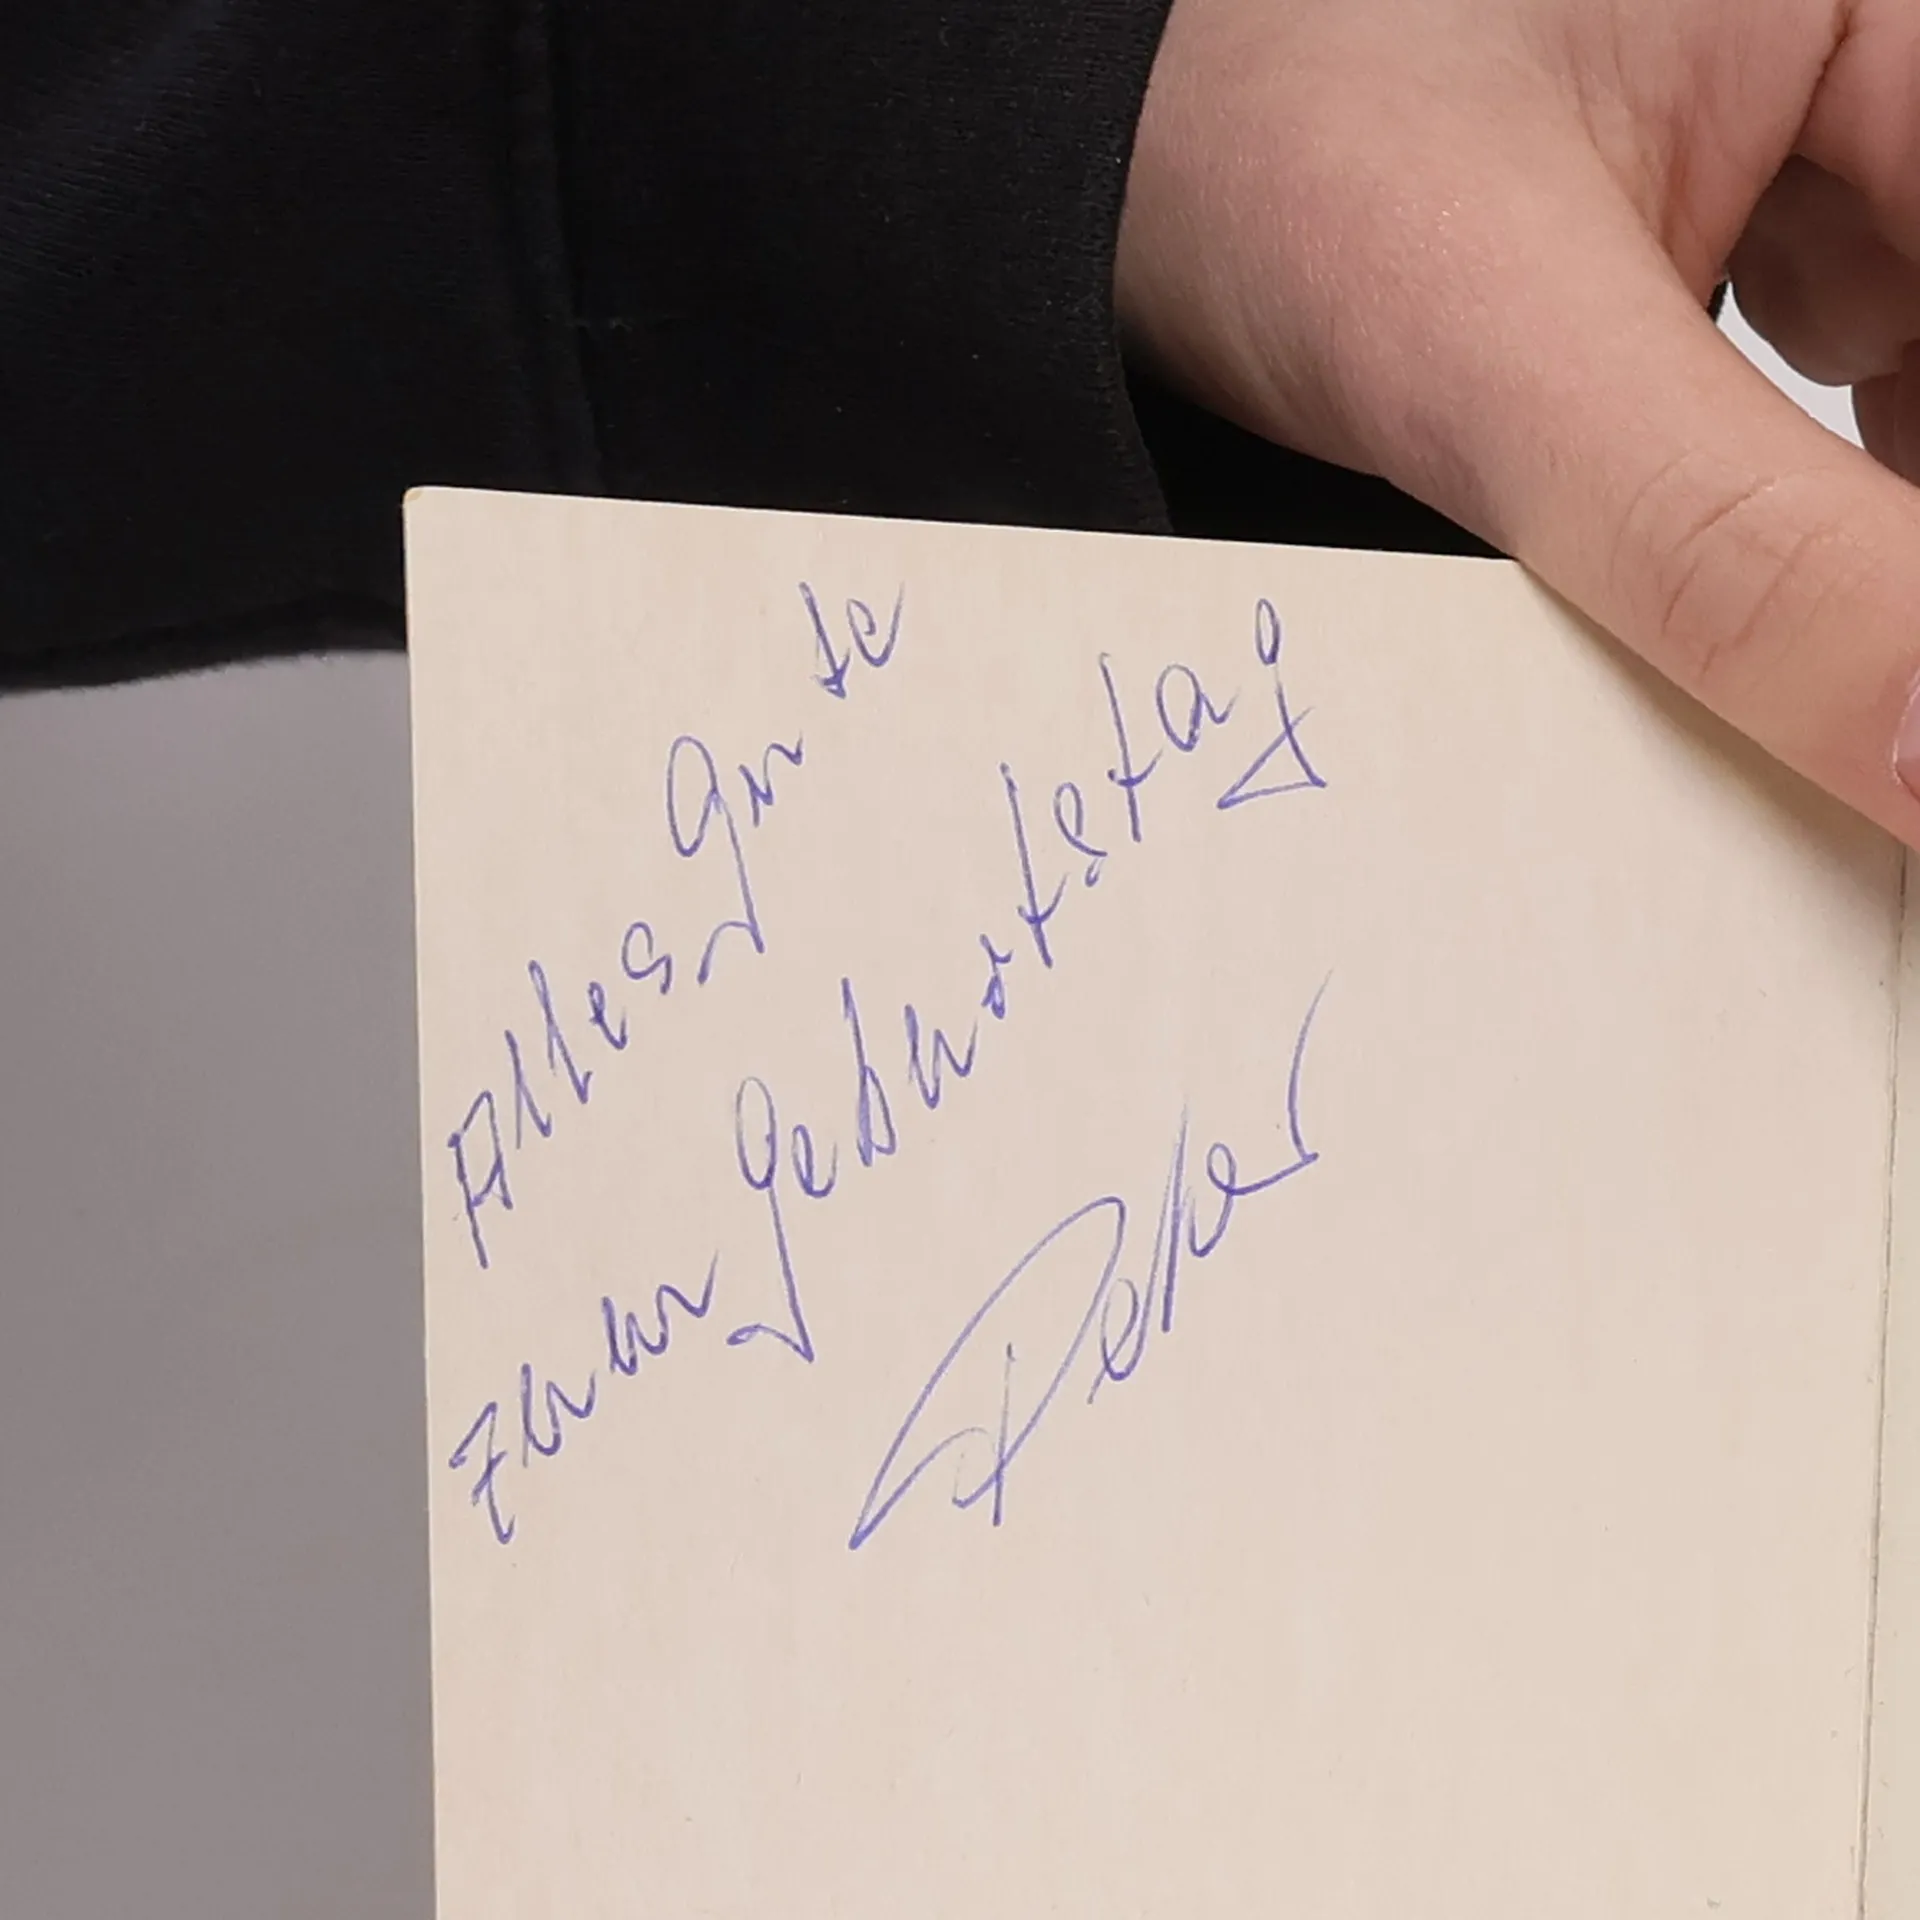 Alles gute
zum geburtstag
Peter